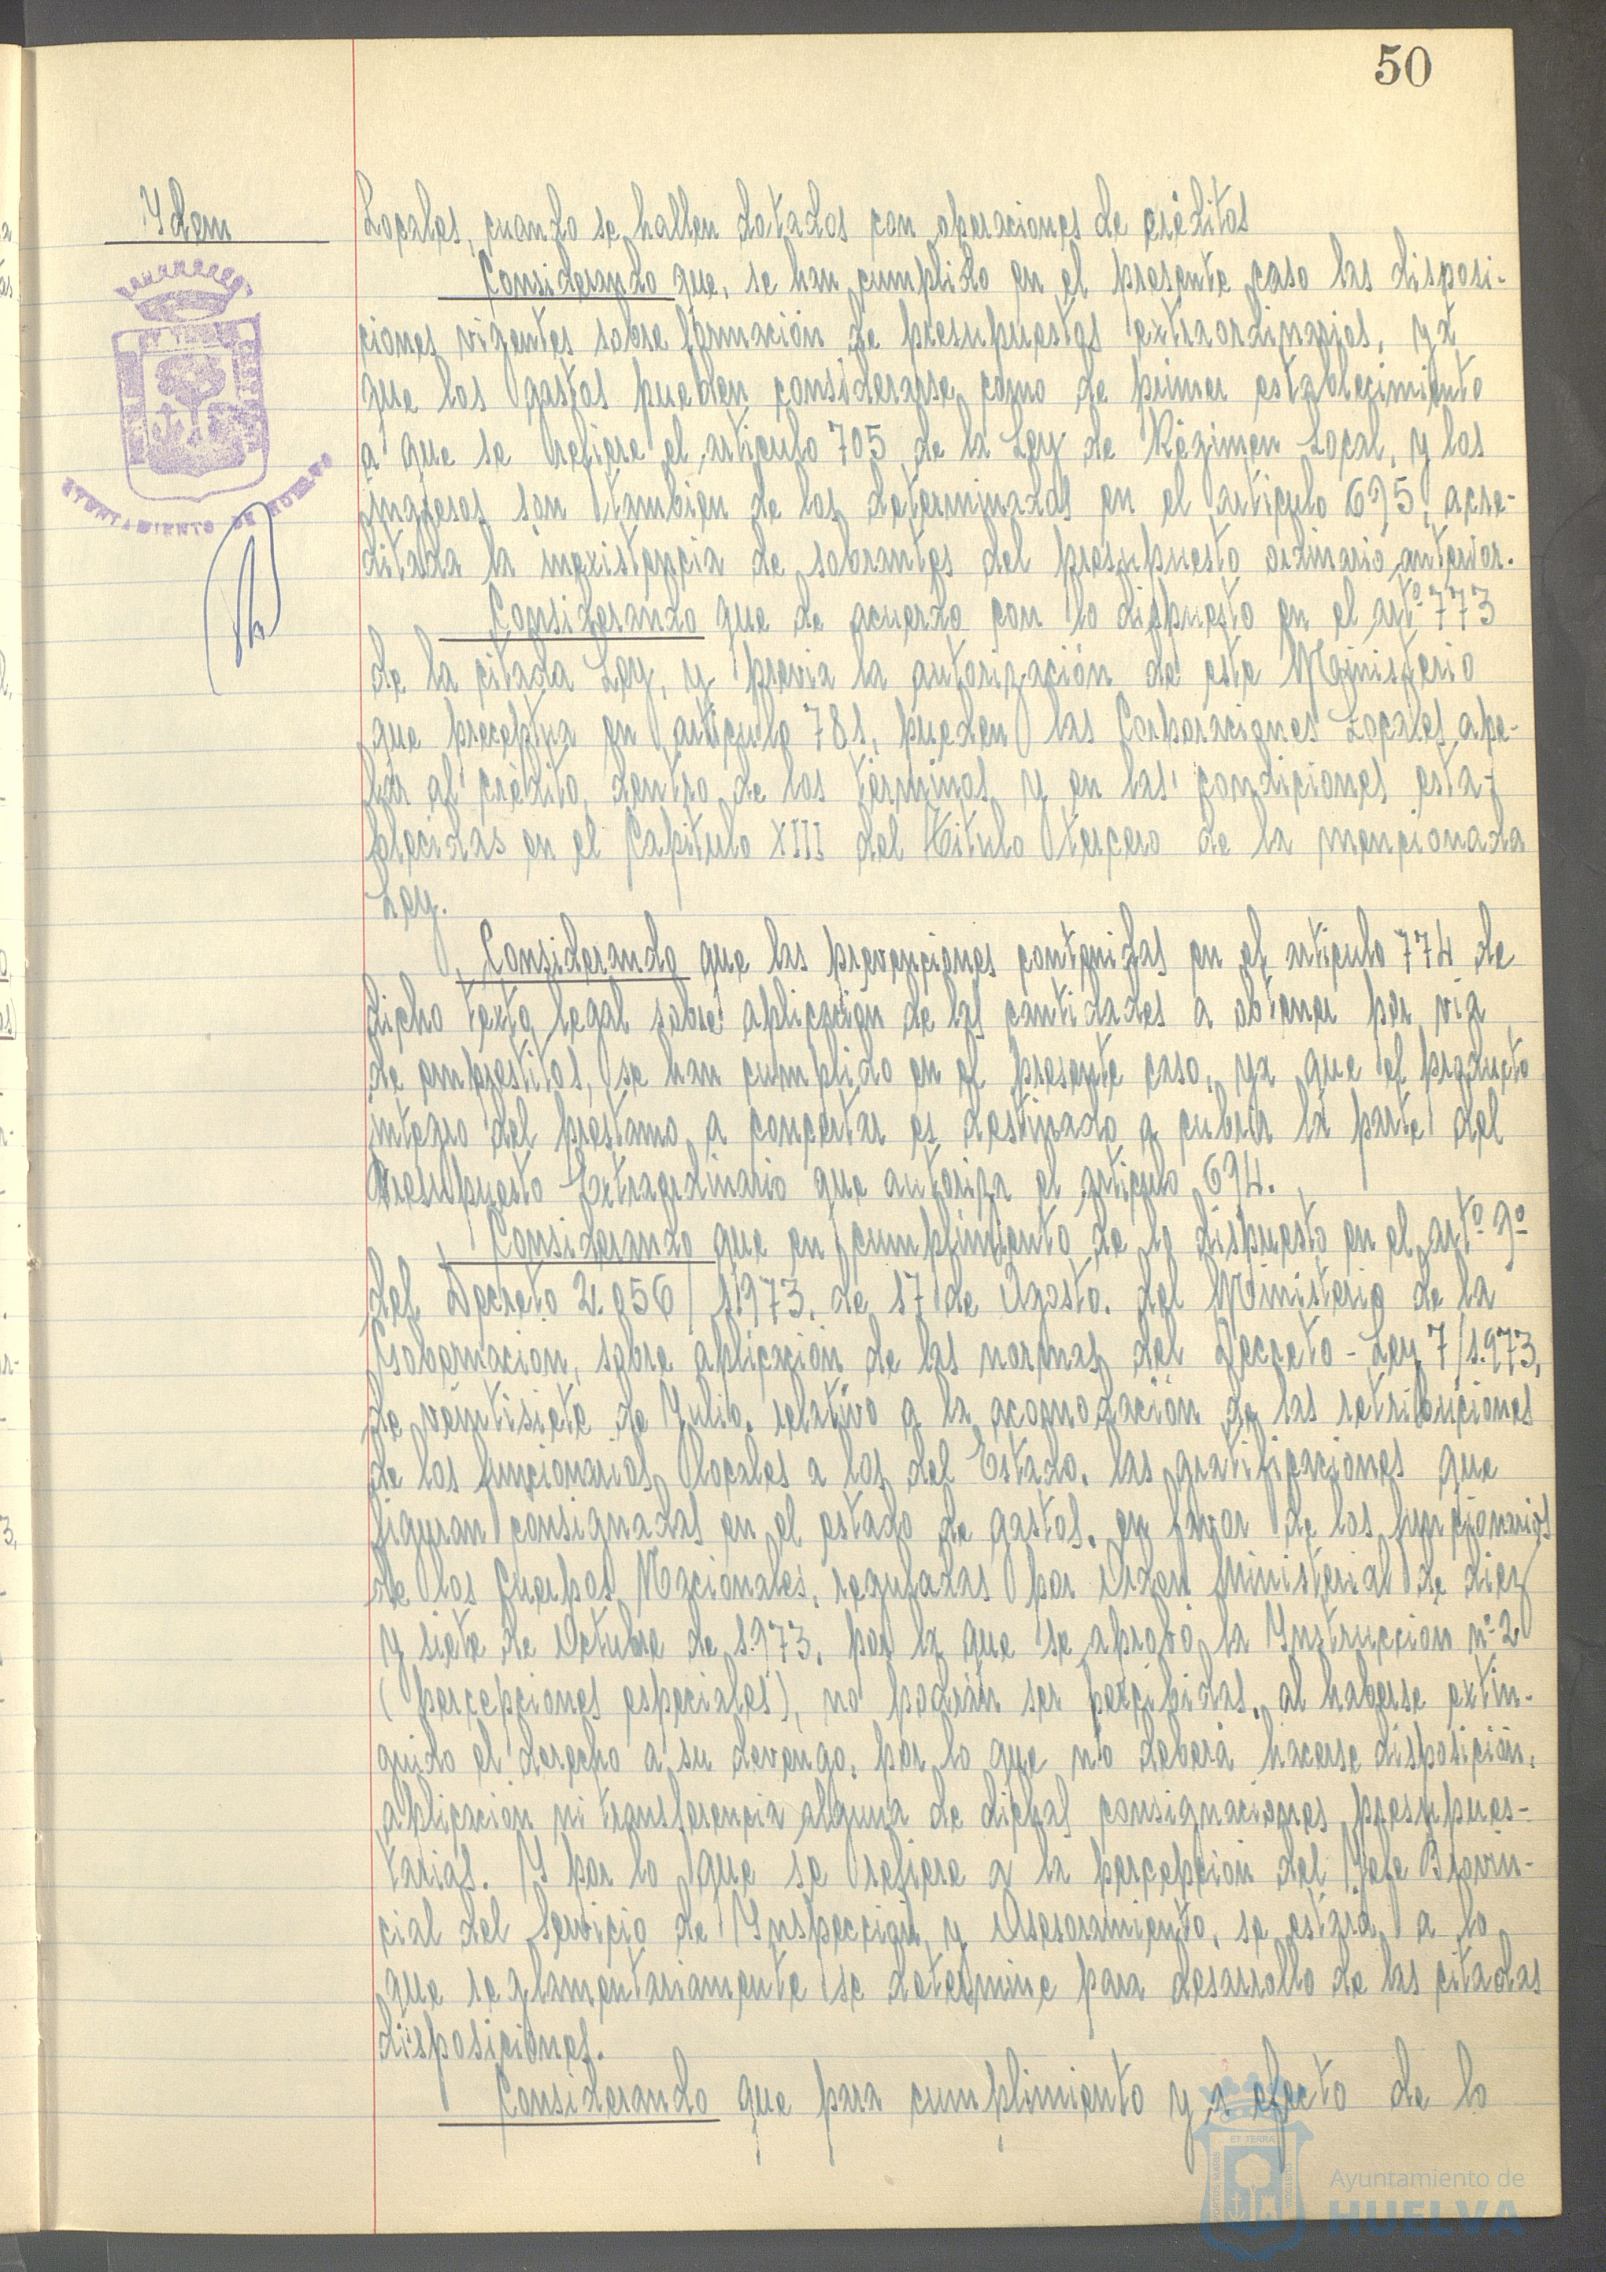 50
Ydem
Locales, cuando se hallen dotados con operaciones de créditos
Considerando que, se han cumplido en el presente caso las disposi-
ciones vigentes sobre formación de presupuestos extraordinarios, ya
que los gastos pueden considerarse como de primer establecimiento
a que se refiere el artículo 705 de la Ley de Régimen Local, y los
ingresos son también de los determinados en el artículo 695, acre-
ditada la inexistencia de sobrantes del presupuesto ordinario anterior.
Considerando que de acuerdo con lo dispuesto en el artº 773
de la citada Ley, y previa la autorización de este Ministerio
que preceptua en artículo 781, pueden las Corporaciones Locales ape-
lar al crédito, dentro de los terminos y en las condiciones esta-
blecidas en el Capítulo XIII del Título tercero de la mencionada
Ley.
Considerando que las prevenciones contenidas en el artículo 774 de
dicho texto legal sobre aplicación de las cantidades a obtener por vía
de emprestitos, se han cumplido en el presente caso, ya que el producto
integro del prestamo a concertar es destinado a cubrir la parte del
Presupuesto Extraordinario que autoriza el artículo 694.
Considerando que en cumplimiento de lo dispuesto en el artº 9º
del Decreto 2.056/1.973, de 17 de Agosto, del Ministerio de la
Gobernación, sobre aplicación de las normas del Decreto-Ley 7/1.973,
de veintisiete de Julio, relativo a la acomodación de las retribuciones
de los funcionarios locales a los del Estado, las gratificaciones que
figuran consignadas en el estado de gastos, en favor de los funcionarios
de los Cuerpos Nacionales, reguladas por Orden Ministerial de diez
y siete de Octubre de 1.973, por la que se aprobó la Instrucción nº 2
(percepciones especiales), no podrán ser percibidas, al haberse extin-
guido el derecho a su devengo, por lo que no deberá hacerse disposición,
aplicación ni transferencia alguna de dichas consignaciones presupues-
tarias. Y por lo que se refiere a la percepción del Jefe Provin-
cial del Servicio de Inspección y Asesoramiento, se estará a lo
que reglamentariamente se determine para desarrollo de las citadas
disposiciones.
Considerando que para cumplimiento y a efecto de lo
AYUNTAMIENTO DE HUELVA
Ayuntamiento de
HUELVA